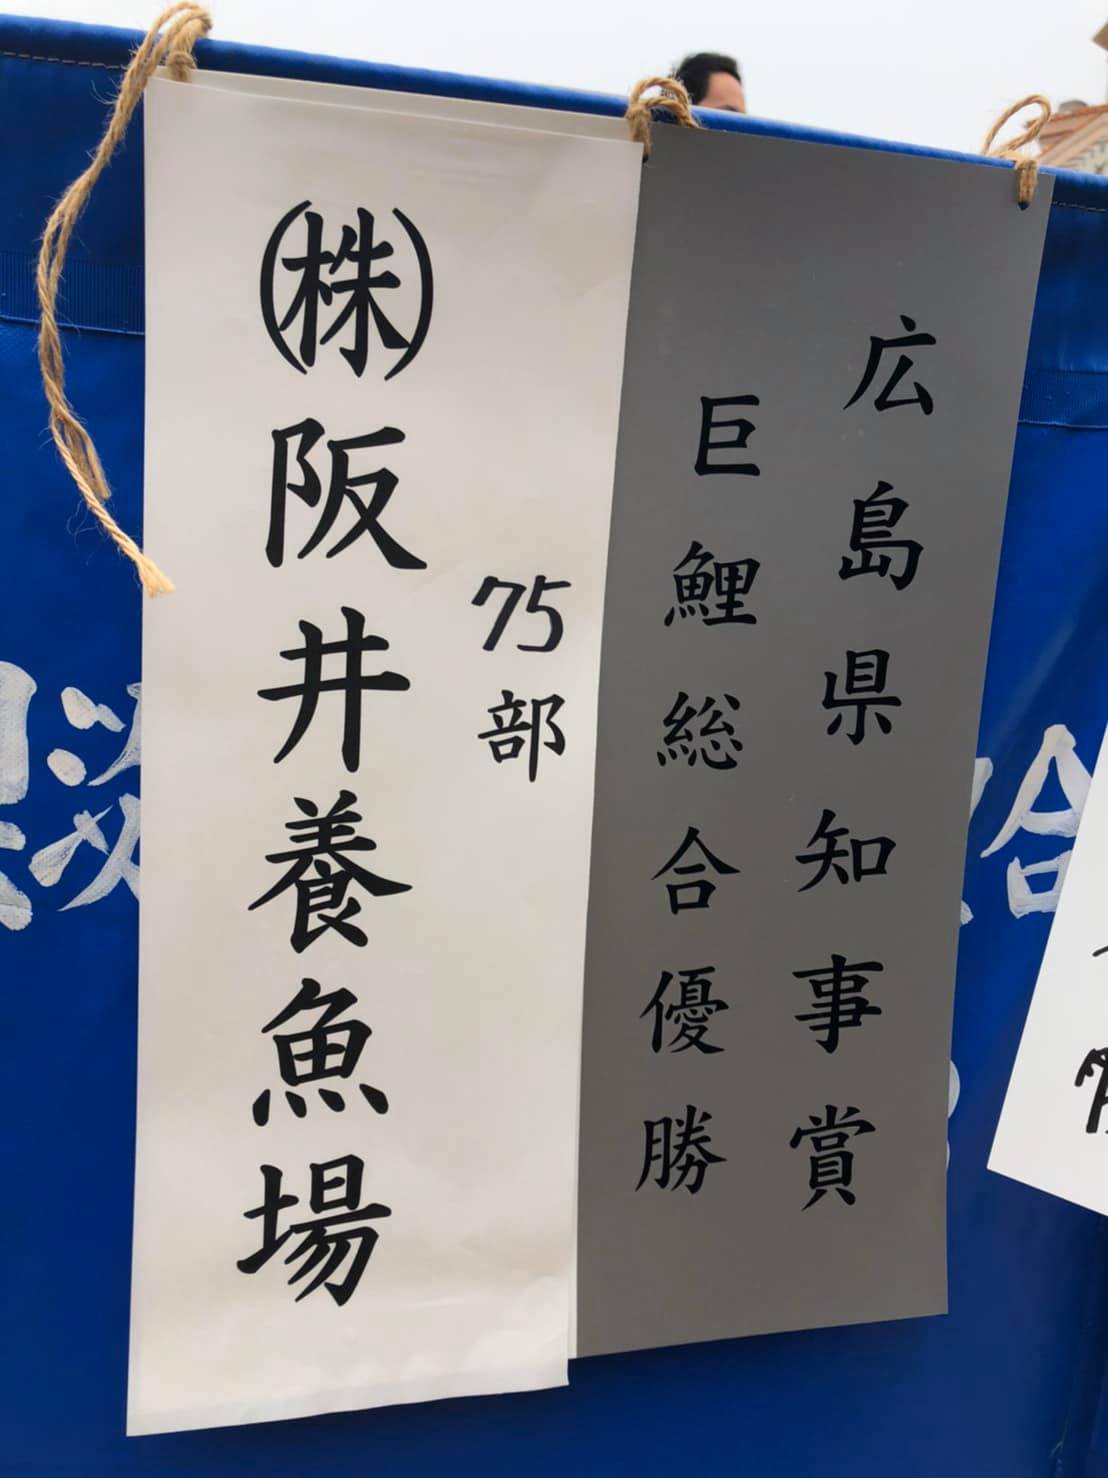 広島県知事賞
巨鯉総合優勝
75部
㈱阪井養魚場